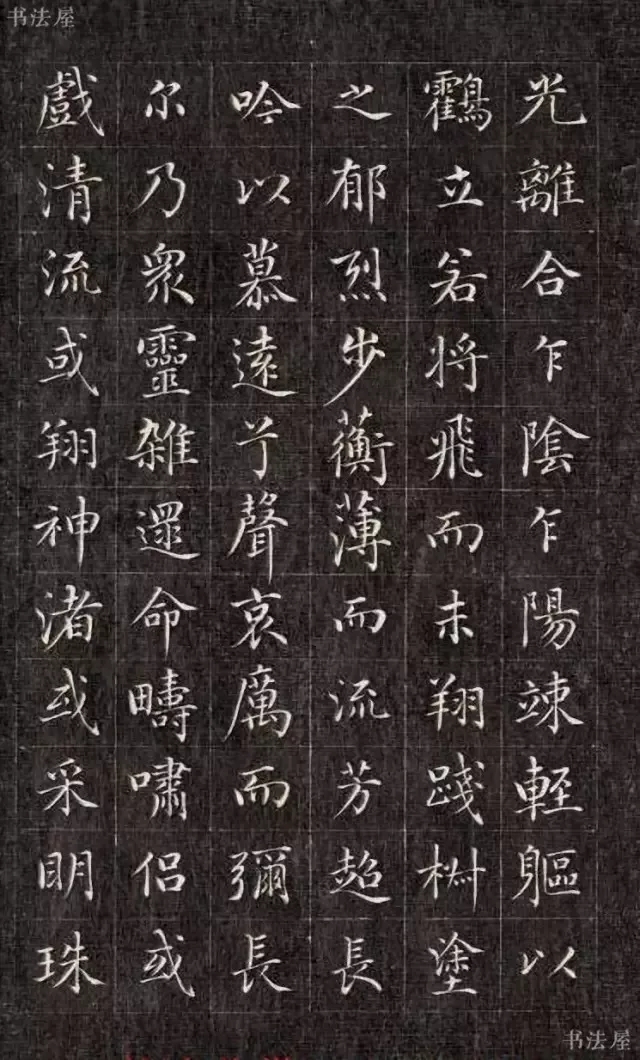 书法屋
光離合乍陰乍陽竦軽軀以
鸖立若将飛而未翔踐椒塗
之郁烈步蘅薄而流芳超長
吟以慕遠兮聲哀厲而彌長
尔乃衆靈雜遝命疇嘯侶或
戲清流或翔神渚或采明珠
书法屋